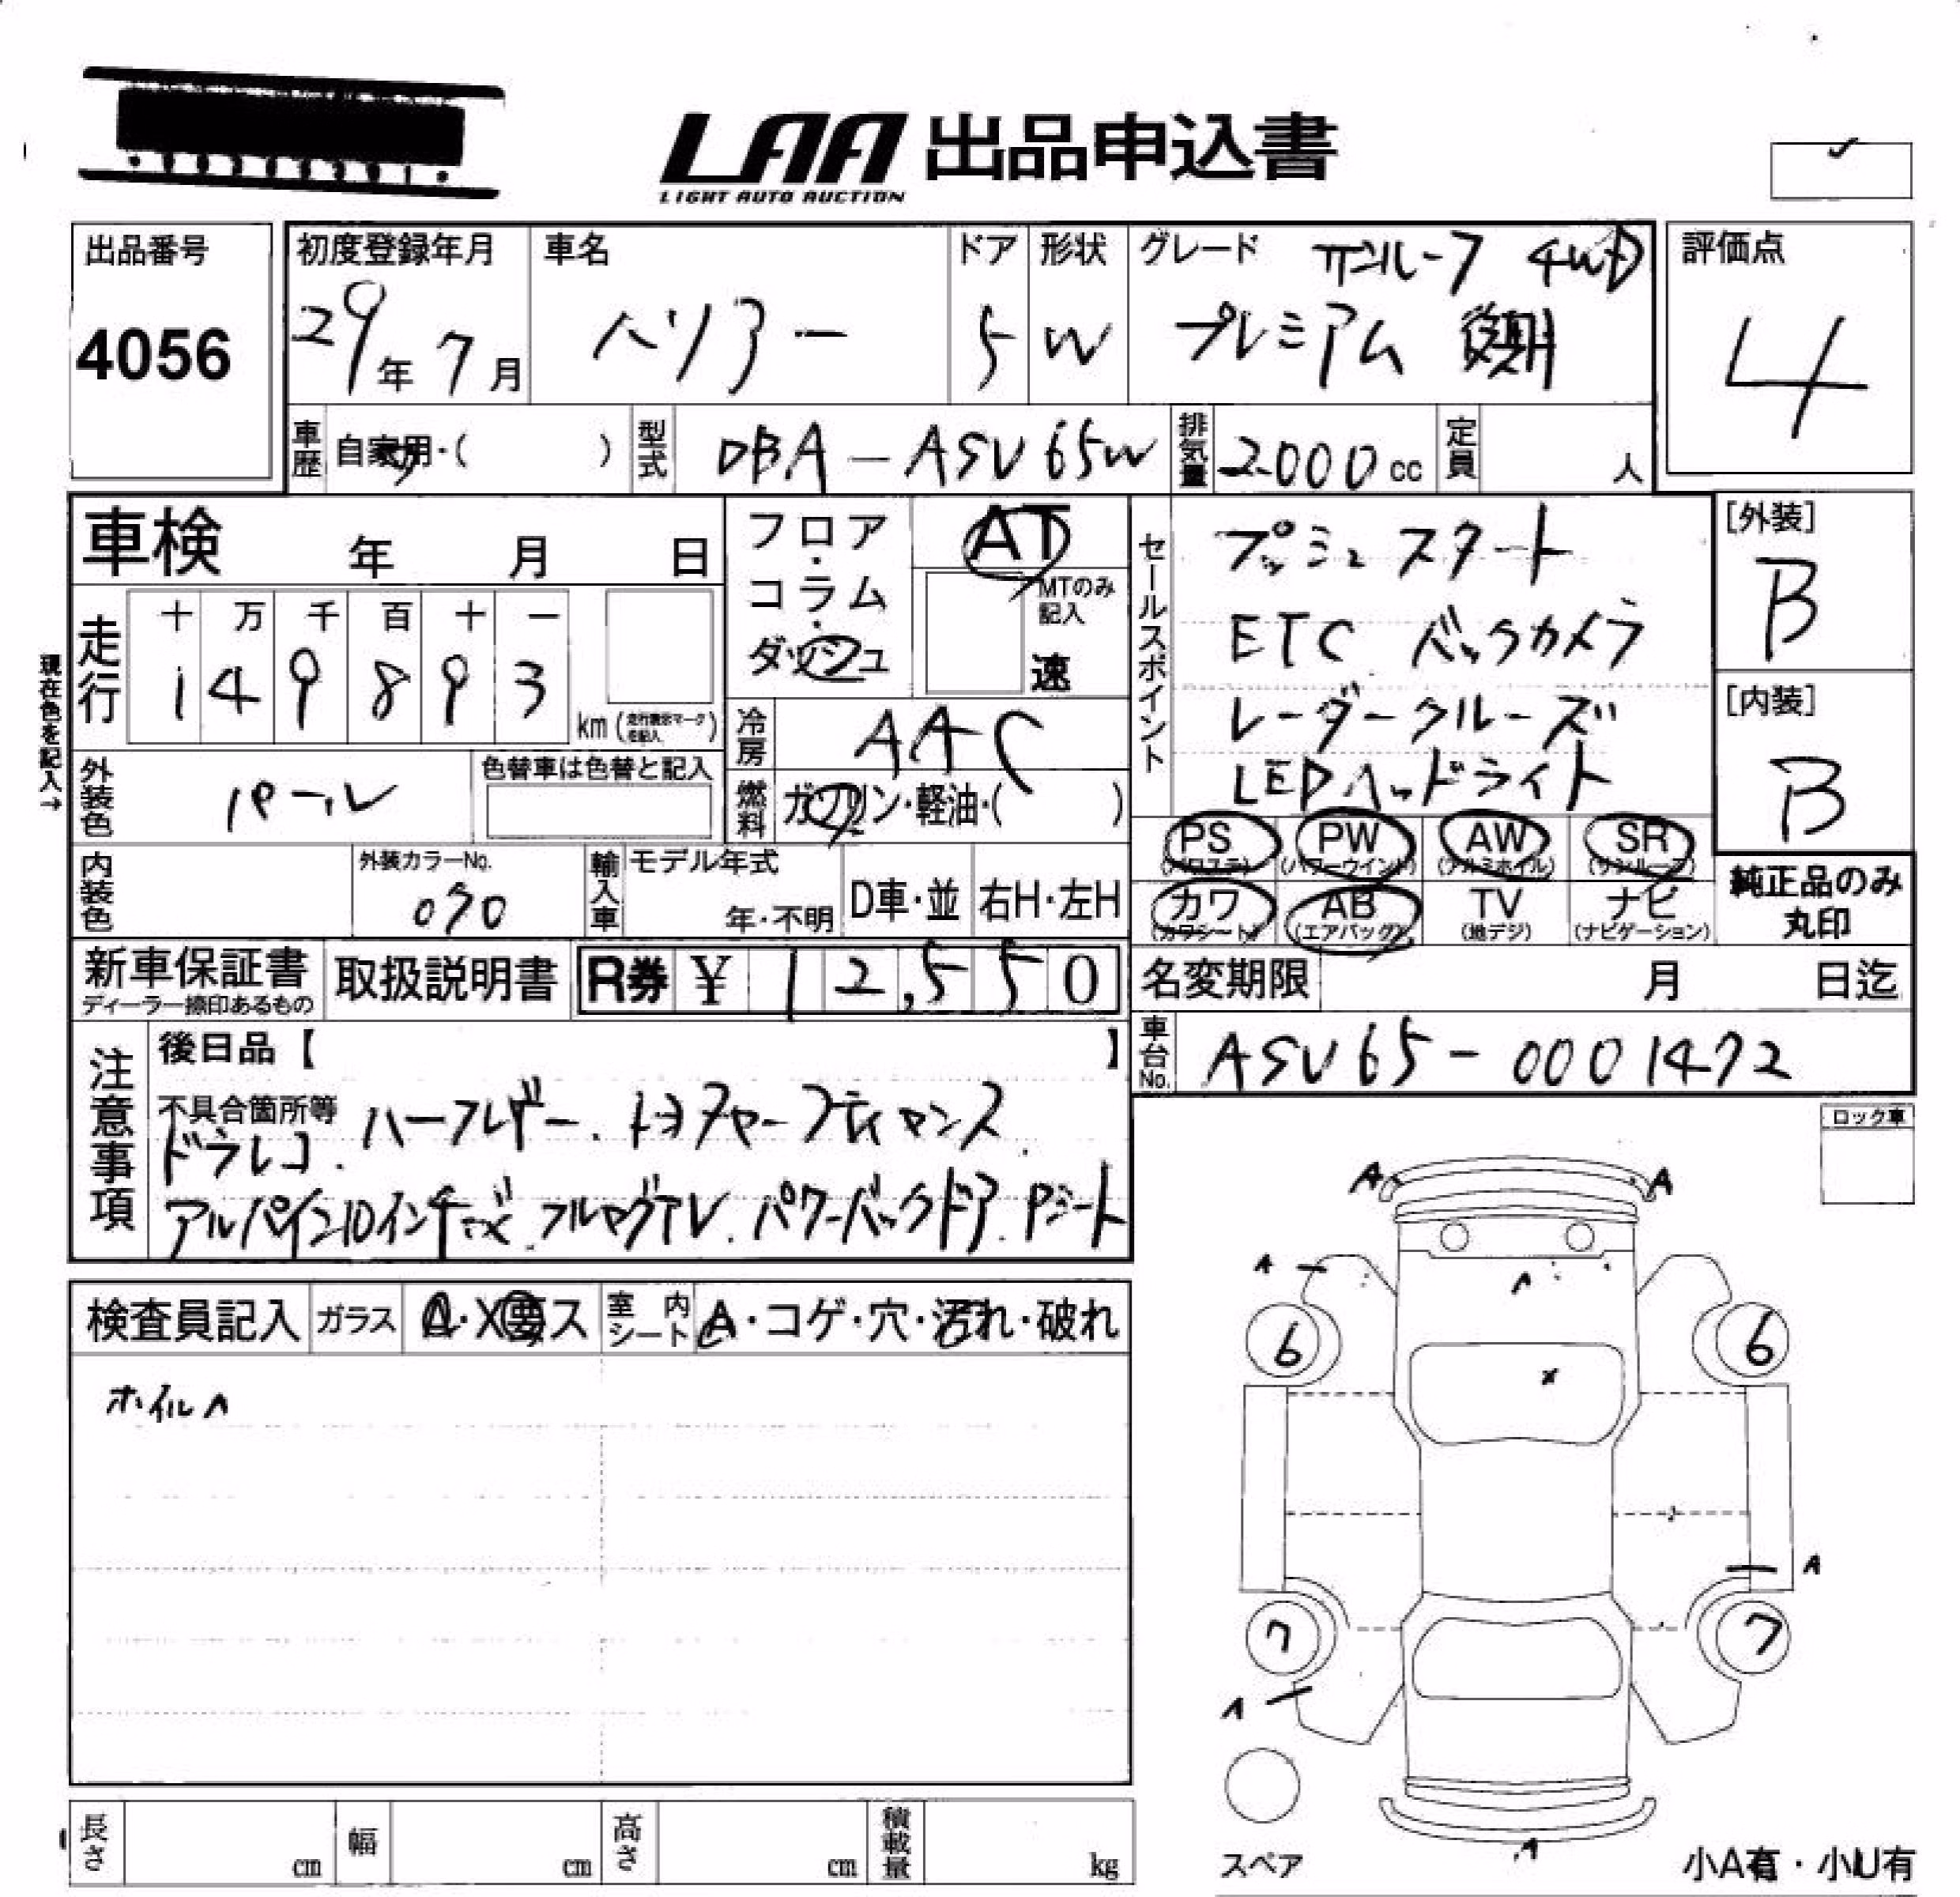 LAA 出品申込書
LIGHT AUTO AUCTION
出品番号
4056
初度登録年月
29年 7月
車名
ハリアー
ドア
5
形状
W
グレード
サンルーフ 4WD
プレミアム 後期
評価点
4
車歴 自家用・( )
型式 DBA-ASU65W
排気量 2000cc
定員 人
車検 年 月 日
フロア・コラム・ダッシュ
AT
MTのみ記入
速
走行
十 万 千 百 十 一
1 4 9 8 9 3
km (走行表示マーク 記入)
現在色を記入→
冷房 AAC
燃料 ガソリン・軽油・( )
外装色 パール
色替車は色替と記入
内装色
外装カラーNo.
070
輸入車
モデル年式
年・不明
D車・並
右H・左H
セールスポイント
プッシュスタート
ETC バックカメラ
レーダークルーズ
LEDヘッドライト
[外装]
B
[内装]
B
PS (パワステ)
PW (パワーウインド)
AW (アルミホイル)
SR (サンルーフ)
カワ (カワシート)
AB (エアバッグ)
TV (地デジ)
ナビ (ナビゲーション)
純正品のみ
丸印
新車保証書
ディーラー捺印あるもの
取扱説明書
R券 ¥ 12,550
名変期限 月 日迄
車台No. ASU65-0001472
注意事項
後日品【 】
不具合箇所等 ハーフレザー、トヨタチャーフティセンス
ドラレコ、
アルパイン10インチナビ、フルセグTV、パワーバックドア、Pシート
ロック車
検査員記入
ガラス A・X要ス
室内シート A・コゲ・穴・汚れ・破れ
ホイルA
A A
A A
6 6
X
A
7 7
A
A
スペア
小A有・小U有
長さ cm
幅 cm
高さ cm
積載量 kg